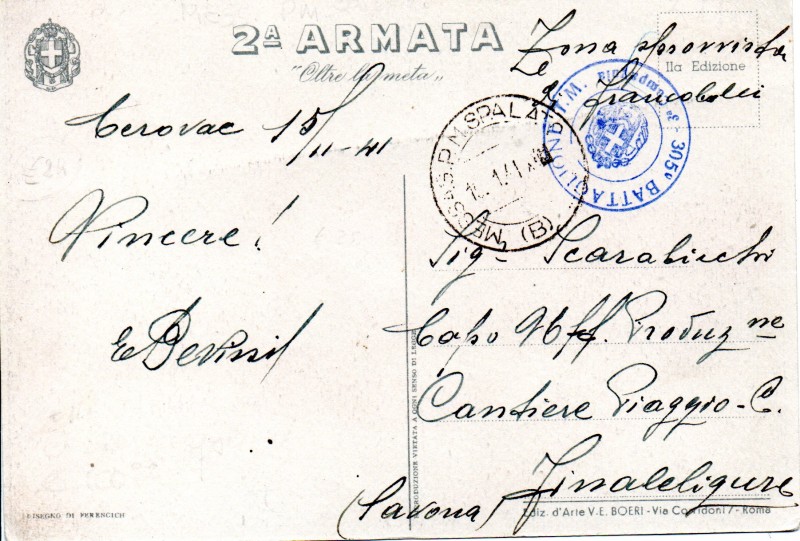 2ª ARMATA
"Oltre la meta„
Zona sprovvista
di francobolli
IIa Edizione
3ª Compagnia - 305° BATTAGLIONE T.M.
MESSAG. P.M. SPALATO
(B)
Cerovac 15/11-41
Vincere!
Sig- Scarabicchi
Capo Uff. Produzne
Cantiere Piaggio-C.
Finaleligure
(Savona)
RIPRODUZIONE VIETATA A OGNI SENSO DI LEGGE
DISEGNO DI FERENCICH
Ediz. d'Arte V.E. BOERI - Via Corridoni 7 - Roma